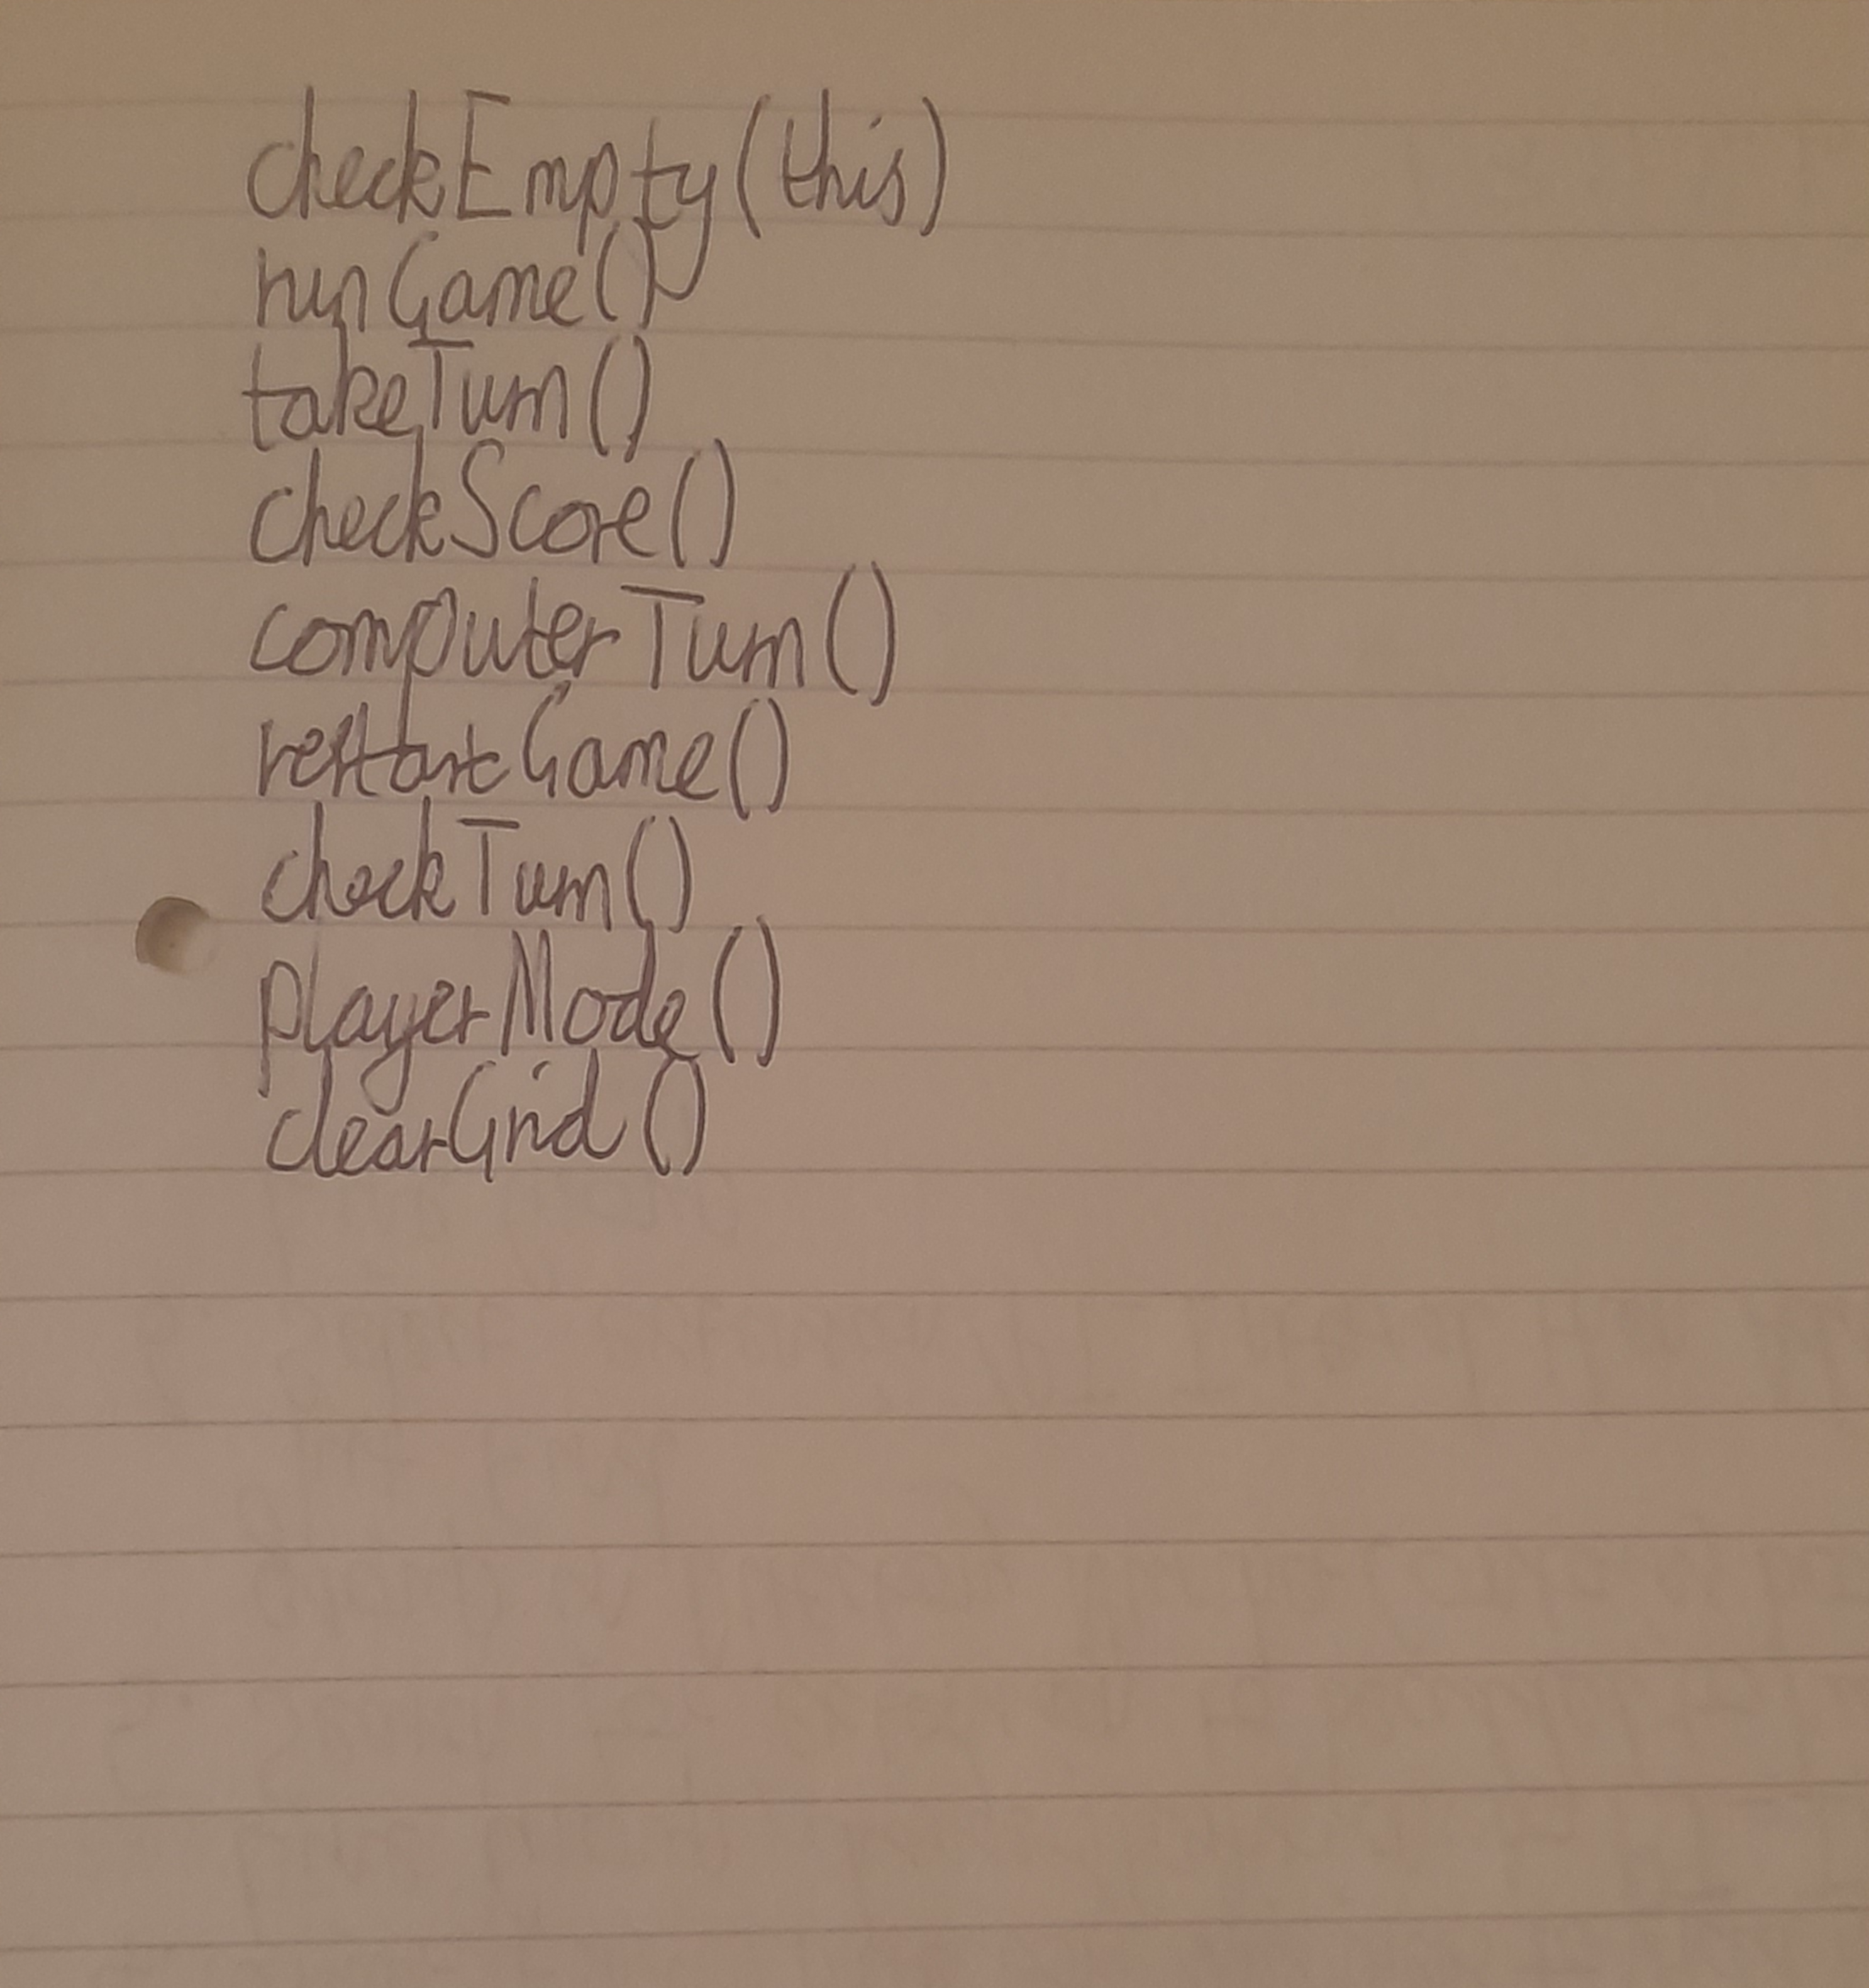 checkEmpty(this)
runGame()
takeTurn()
checkScore()
computerTurn()
restartGame()
checkTurn()
playerMode()
clearGrid()